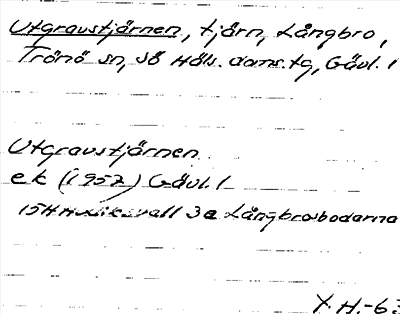 Utgravstjärnen, tjärn, Långbro,
Trönö sn, Sö Häls. doms.tg, Gävl. l
Utgravstjärnen
ek (1957) Gävl. l
15H Hudiksvall 3a Långbrobodarna
Y.H.-63